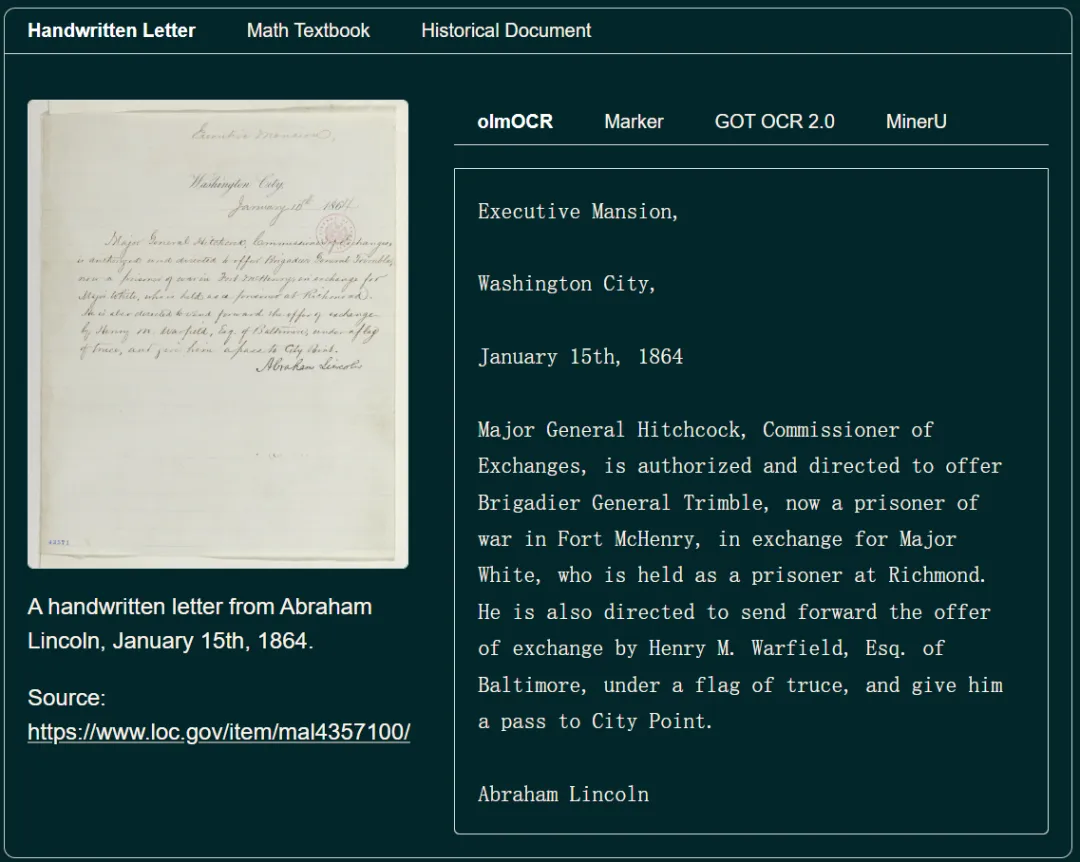 Handwritten Letter Math Textbook Historical Document
Executive Mansion,
Washington City,
January 1864
Major General Hitchcock, Commissioner of Exchanges,
is authorized and directed to offer Brigadier General Trimble,
now a prisoner of war in Fort McHenry, in exchange for
Major White, who is held as a prisoner at Richmond.
He is also directed to send forward the offer of exchange
by Henry M. Warfield, Esq. of Baltimore, under a flag
of truce, and give him a pass to City Point.
Abraham Lincoln
A handwritten letter from Abraham
Lincoln, January 15th, 1864.
Source:
https://www.loc.gov/item/mal4357100/
olmOCR Marker GOT OCR 2.0 MinerU
Executive Mansion,
Washington City,
January 15th, 1864
Major General Hitchcock, Commissioner of
Exchanges, is authorized and directed to offer
Brigadier General Trimble, now a prisoner of
war in Fort McHenry, in exchange for Major
White, who is held as a prisoner at Richmond.
He is also directed to send forward the offer
of exchange by Henry M. Warfield, Esq. of
Baltimore, under a flag of truce, and give him
a pass to City Point.
Abraham Lincoln